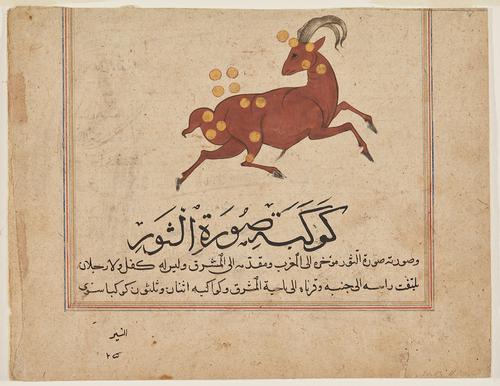 كوكبة صورة الثور
وصورته صورة الثور موخره الى المغرب ومقدمه الى المشرق وليس له كفل ولا رجلان
يلتفت راسه الى جنبه وقرناه الى ناحية المشرق وكواكبه اثنان وثلثون كوكبا سوى
النير